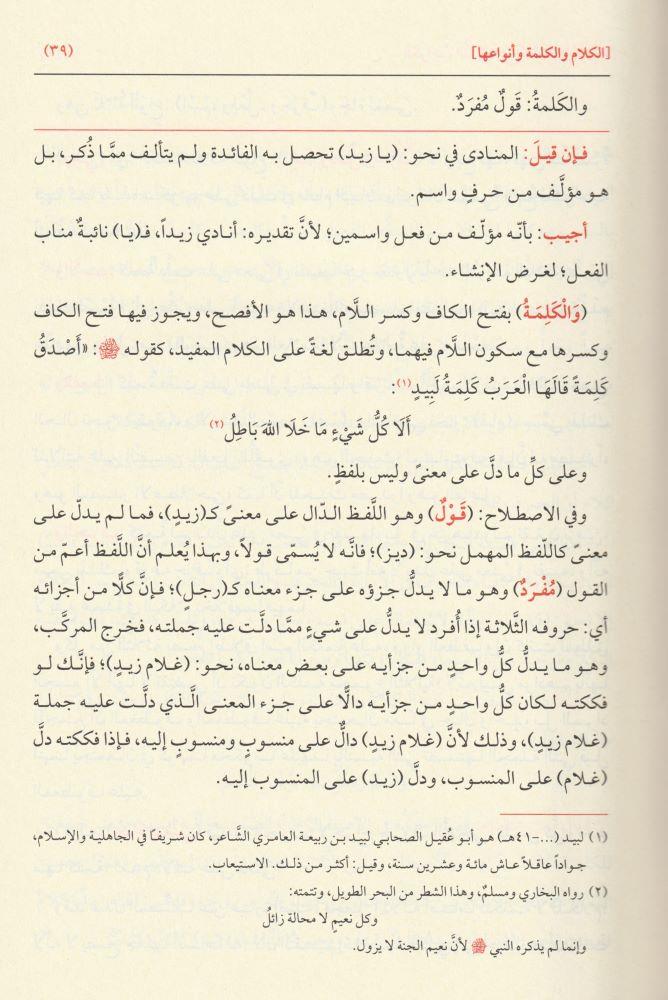 [الكلام والكلمة وأنواعها] (٣٩)
والكَلمةُ: قَولٌ مُفرَدٌ.
فإن قيلَ: المنادى في نحو: (يا زيد) تحصل به الفائدة ولم يتألف ممَّا ذُكر، بل
هو مؤلَّف من حرفٍ واسم.
أجيب: بأنّه مؤلّف من فعل واسمين؛ لأنَّ تقديره: أنادي زيداً، فـ(يا) نائبةٌ مناب
الفعل؛ لغرض الإنشاء.
(وَالْكَلِمَةُ) بفتح الكاف وكسر اللَّام، هذا هو الأفصح، ويجوز فيها فتح الكاف
وكسرها مع سكون اللَّام فيهما، وتُطلق لغةً على الكلام المفيد، كقوله ﷺ: «أَصْدَقُ
كَلِمَةٍ قَالَهَا الْعَرَبُ كَلِمَةُ لَبِيدٍ(١):
أَلَا كُلُّ شَيْءٍ مَا خَلَا اللهَ بَاطِلُ(٢)
وعلى كلِّ ما دلَّ على معنىً وليس بلفظٍ.
وفي الاصطلاح: (قَوْلٌ) وهو اللَّفظ الدّال على معنىً كـ(زيدٍ)، فما لم يدلَّ على
معنىً كاللّفظ المهمل نحو: (ديز)؛ فإنَّه لا يُسمّى قولاً، وبهذا يُعلم أنَّ اللَّفظ أعمّ من
القول (مُفْرَدٌ) وهو ما لا يدلُّ جزؤه على جزء معناه كـ(رجلٍ)؛ فإنَّ كلًّا من أجزائه
أي: حروفه الثَّلاثة إذا أُفرد لا يدلُّ على شيءٍ ممَّا دلَّت عليه جملته، فخرج المركَّب،
وهو ما يدلُّ كلُّ واحدٍ من جزأيه على بعض معناه، نحو: (غلام زيدٍ)؛ فإنَّك لو
فككته لكان كلُّ واحدٍ من جزأيه دالًّا على جزء المعنى الَّذي دلَّت عليه جملة
(غلام زيدٍ)، وذلك لأنَّ (غلام زيدٍ) دالٌّ على منسوبٍ ومنسوبٍ إليه، فإذا فككته دلَّ
(غلام) على المنسوب، ودلَّ (زيد) على المنسوب إليه.
(١) لبيد (...-٤١هـ) هو أبو عُقيل الصحابي لبيد بن ربيعة العامري الشَّاعر، كان شريفًا في الجاهلية والإسلام،
جواداً عاقلاً عاش مائة وعشرين سنة، وقيل: أكثر من ذلك. الاستيعاب.
(٢) رواه البخاري ومسلمٌ، وهذا الشطر من البحر الطويل، وتتمته:
وكل نعيمٍ لا محالة زائلُ
وإنما لم يذكره النبي ﷺ لأنَّ نعيم الجنة لا يزول.